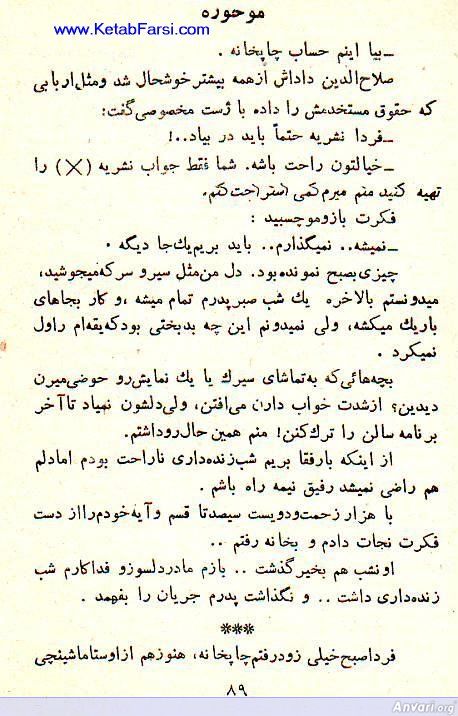 موحوره
www.KetabFarsi.com
ـ بیا اینم حساب چاپخانه .
صلاح‌الدین داداش ازهمه بیشترخوشحال شد ومثل‌اربابی
که حقوق مستخدمش را داده با ژست مخصوصی‌گفت:
ـ فردا نشریه حتماً باید در بیاد..!
ـ خیالتون راحت باشه. شما فقط جواب نشریه (X) را
تهیه کنید منم میرم‌کمی استراحت‌کنم.
فکرت بازوموچسبید :
ـ نمیشه.. نمیگذارم.. باید بریم‌یك‌جا دیگه .
چیزی‌بصبح نمونده‌بود. دل من‌مثل سیرو سرکه‌میجوشید،
میدونستم بالاخره یك شب صبرپدرم تمام میشه ،و کار بجاهای
باریك میکشه، ولی نمیدونم این چه بدبختی بودکه‌یقه‌ام راول
نمیکرد .
بچه‌هائی‌که به‌تماشای سیرك یا یك نمایش‌رو حوضی‌میرن
دیدین؟ ازشدت خواب دارن می‌افتن، ولی‌دلشون نمیاد تاآخر
برنامه سالن را ترك‌کنن! منم همین حال‌روداشتم.
از اینکه بارفقا بریم شب‌زنده‌داری ناراحت بودم امادلم
هم راضی نمیشد رفیق نیمه راه باشم .
با هزار زحمت‌ودویست سیصدتا قسم وآیه‌خودم‌رااز دست
فکرت نجات دادم و بخانه رفتم ..
اونشب هم بخیرگذشت .. بازم مادردلسوزو فداکارم شب
زنده‌داری داشت .. و نگذاشت پدرم جریان را بفهمد .
***
فرداصبح‌خیلی زودرفتم‌چاپخانه، هنوزهم ازاوستاماشینچی
۸۹
Anvari.org